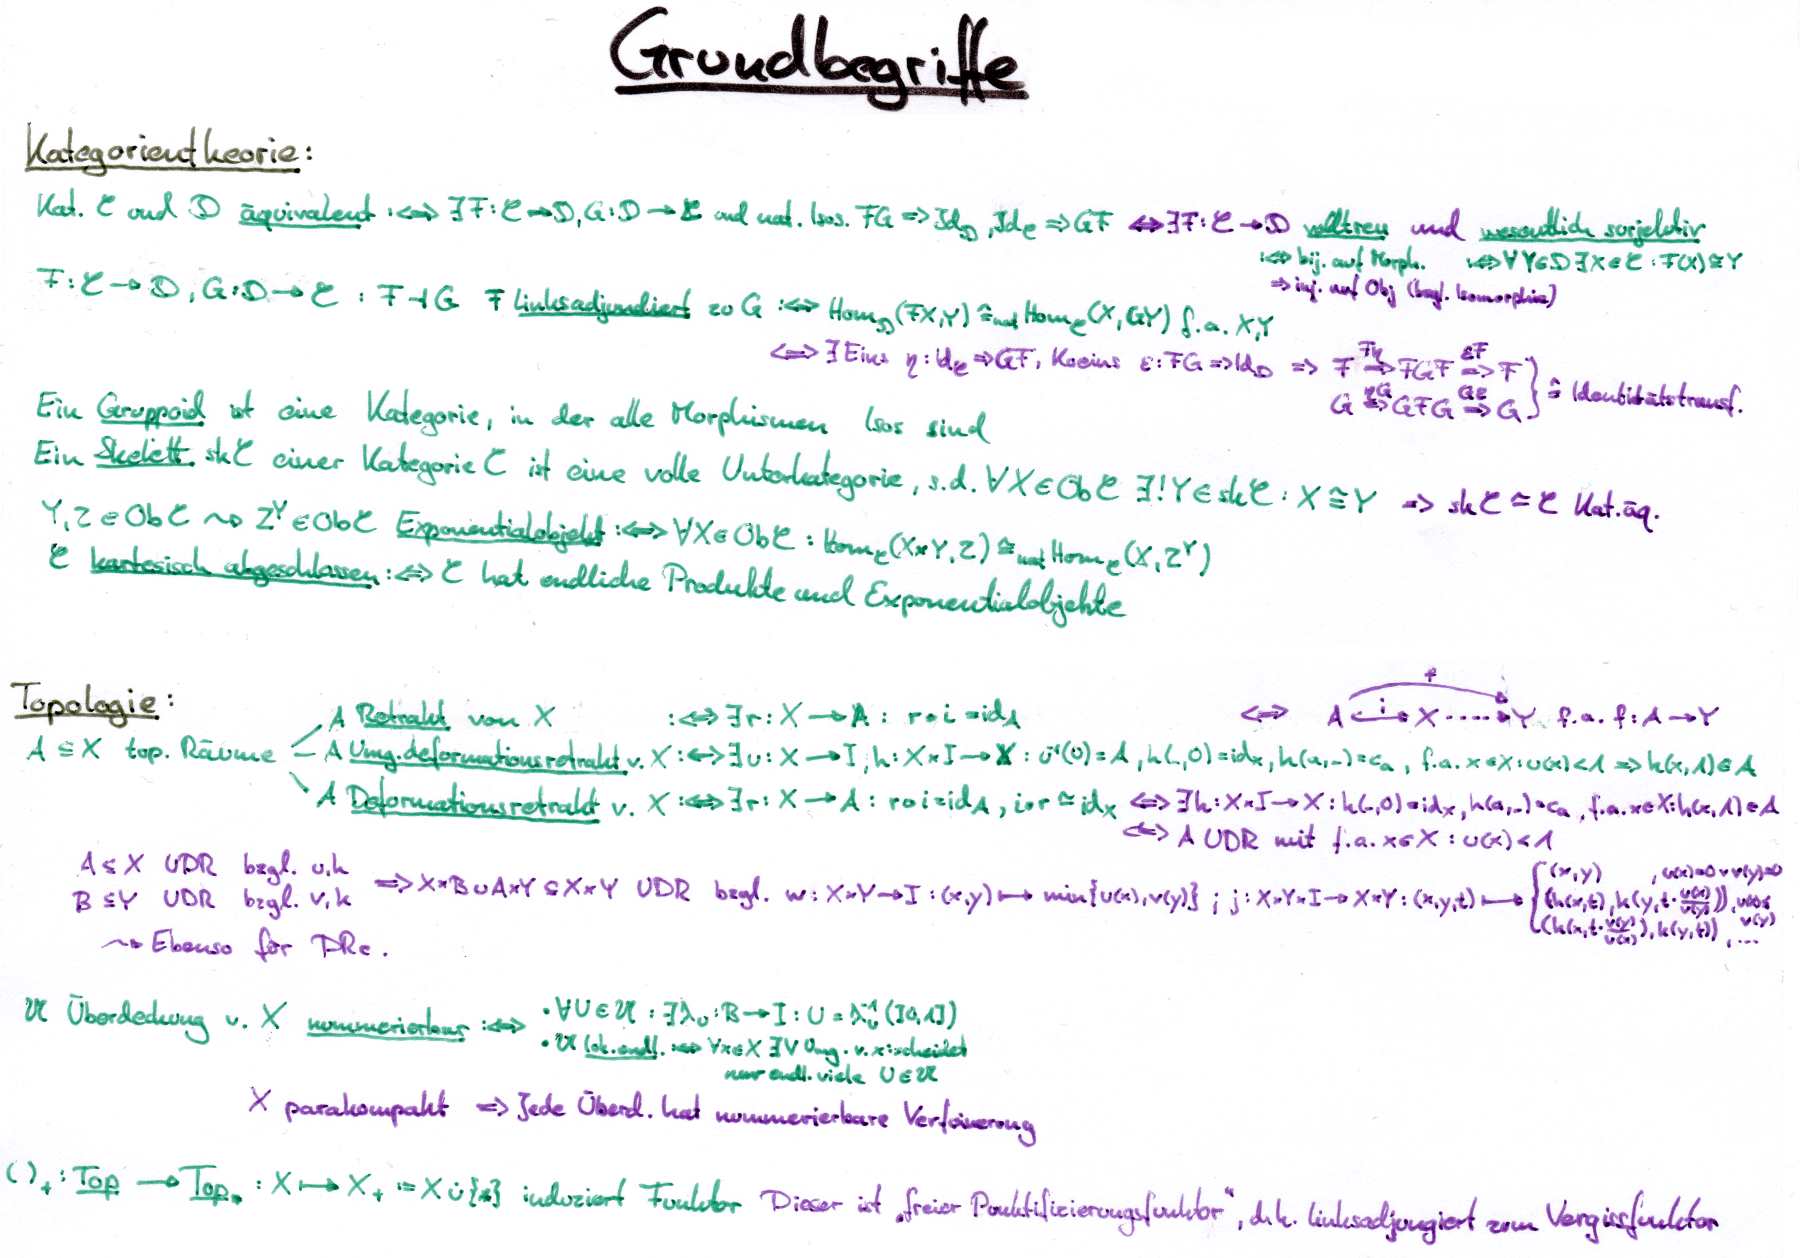 Grundbegriffe
Kategorientheorie:
Kat. 𝒞 und 𝒟 äquivalent :⇔ ∃F: 𝒞→𝒟, G: 𝒟→𝒞 und nat. Isos. FG ⇒ Id_𝒟, Id_𝒞 ⇒ GF ⇔ ∃F: 𝒞→𝒟 volltreu und wesentlich surjektiv
:⇔ bij. auf Morph. :⇔ ∀Y∈𝒟 ∃X∈𝒞 : F(X)≅Y
⇒ inj. auf Obj (bzgl. Isomorphie)
F: 𝒞→𝒟, G: 𝒟→𝒞 : F ⊣ G F linksadjungiert zu G :⇔ Hom_𝒟(FX,Y) ≅_nat Hom_𝒞(X,GY) f.a. X,Y
⇔ ∃ Eins η: Id_𝒞 ⇒ GF, Koeins ε: FG ⇒ Id_𝒟 ⇒ F =Fη⇒ FGF =εF⇒ F
G =ηG⇒ GFG =Gε⇒ G } ≙ Identitätstransf.
Ein Gruppoid ist eine Kategorie, in der alle Morphismen Isos sind
Ein Skelett sk𝒞 einer Kategorie 𝒞 ist eine volle Unterkategorie, s.d. ∀X∈Ob𝒞 ∃!Y∈sk𝒞 : X≅Y ⇒ sk𝒞 ≃ 𝒞 Kat.äq.
Y,Z∈Ob𝒞 ⤳ Z^Y∈Ob𝒞 Exponentialobjekt :⇔ ∀X∈Ob𝒞 : Hom_𝒞(X×Y,Z) ≅_nat Hom_𝒞(X,Z^Y)
𝒞 kartesisch abgeschlossen :⇔ 𝒞 hat endliche Produkte und Exponentialobjekte
Topologie:
A Retrakt von X :⇔ ∃r: X→A : r∘i=id_A ⇔ A –i→ X ····→ Y f.a. f: A→Y
f
A⊆X top. Räume – A Umg.deformationsretrakt v. X :⇔ ∃u: X→I, h: X×I→X : u⁻¹(0)=A, h(_,0)=id_X, h(a,_)=c_a, f.a. x∈X: u(x)<1 ⇒ h(x,1)∈A
A Deformationsretrakt v. X :⇔ ∃r: X→A : r∘i=id_A, i∘r≃id_X ⇔ ∃h: X×I→X : h(_,0)=id_X, h(a,_)=c_a, f.a. x∈X: h(x,1)∈A
⇔ A UDR mit f.a. x∈X : u(x)<1
A⊆X UDR bzgl. u,h
B⊆Y UDR bzgl. v,k ⇒ X×B∪A×Y⊆X×Y UDR bzgl. w: X×Y→I : (x,y)↦min{u(x),v(y)} ; j: X×Y×I→X×Y : (x,y,t)↦ { (x,y) , u(x)=0∨v(y)=0
(h(x,t), k(y,t·u(x)/v(y))), u(x)≤v(y)
(h(x,t·v(y)/u(x)), k(y,t)) , ...
⤳ Ebenso für DRe.
𝒰 Überdeckung v. X nummerierbar :⇔ • ∀U∈𝒰 : ∃λ_U: B→I : U=λ_U⁻¹(]0,1])
• 𝒰 lok.endl. :⇔ ∀x∈X ∃V Umg. v. x: schneidet
nur endl. viele U∈𝒰
X parakompakt ⇒ Jede Überd. hat nummerierbare Verfeinerung
( )₊ : Top → Top_* : X ↦ X₊ := X ∪̇ {*} induziert Funktor Dieser ist „freier Punktifizierungsfunktor“, d.h. linksadjungiert zum Vergissfunktor